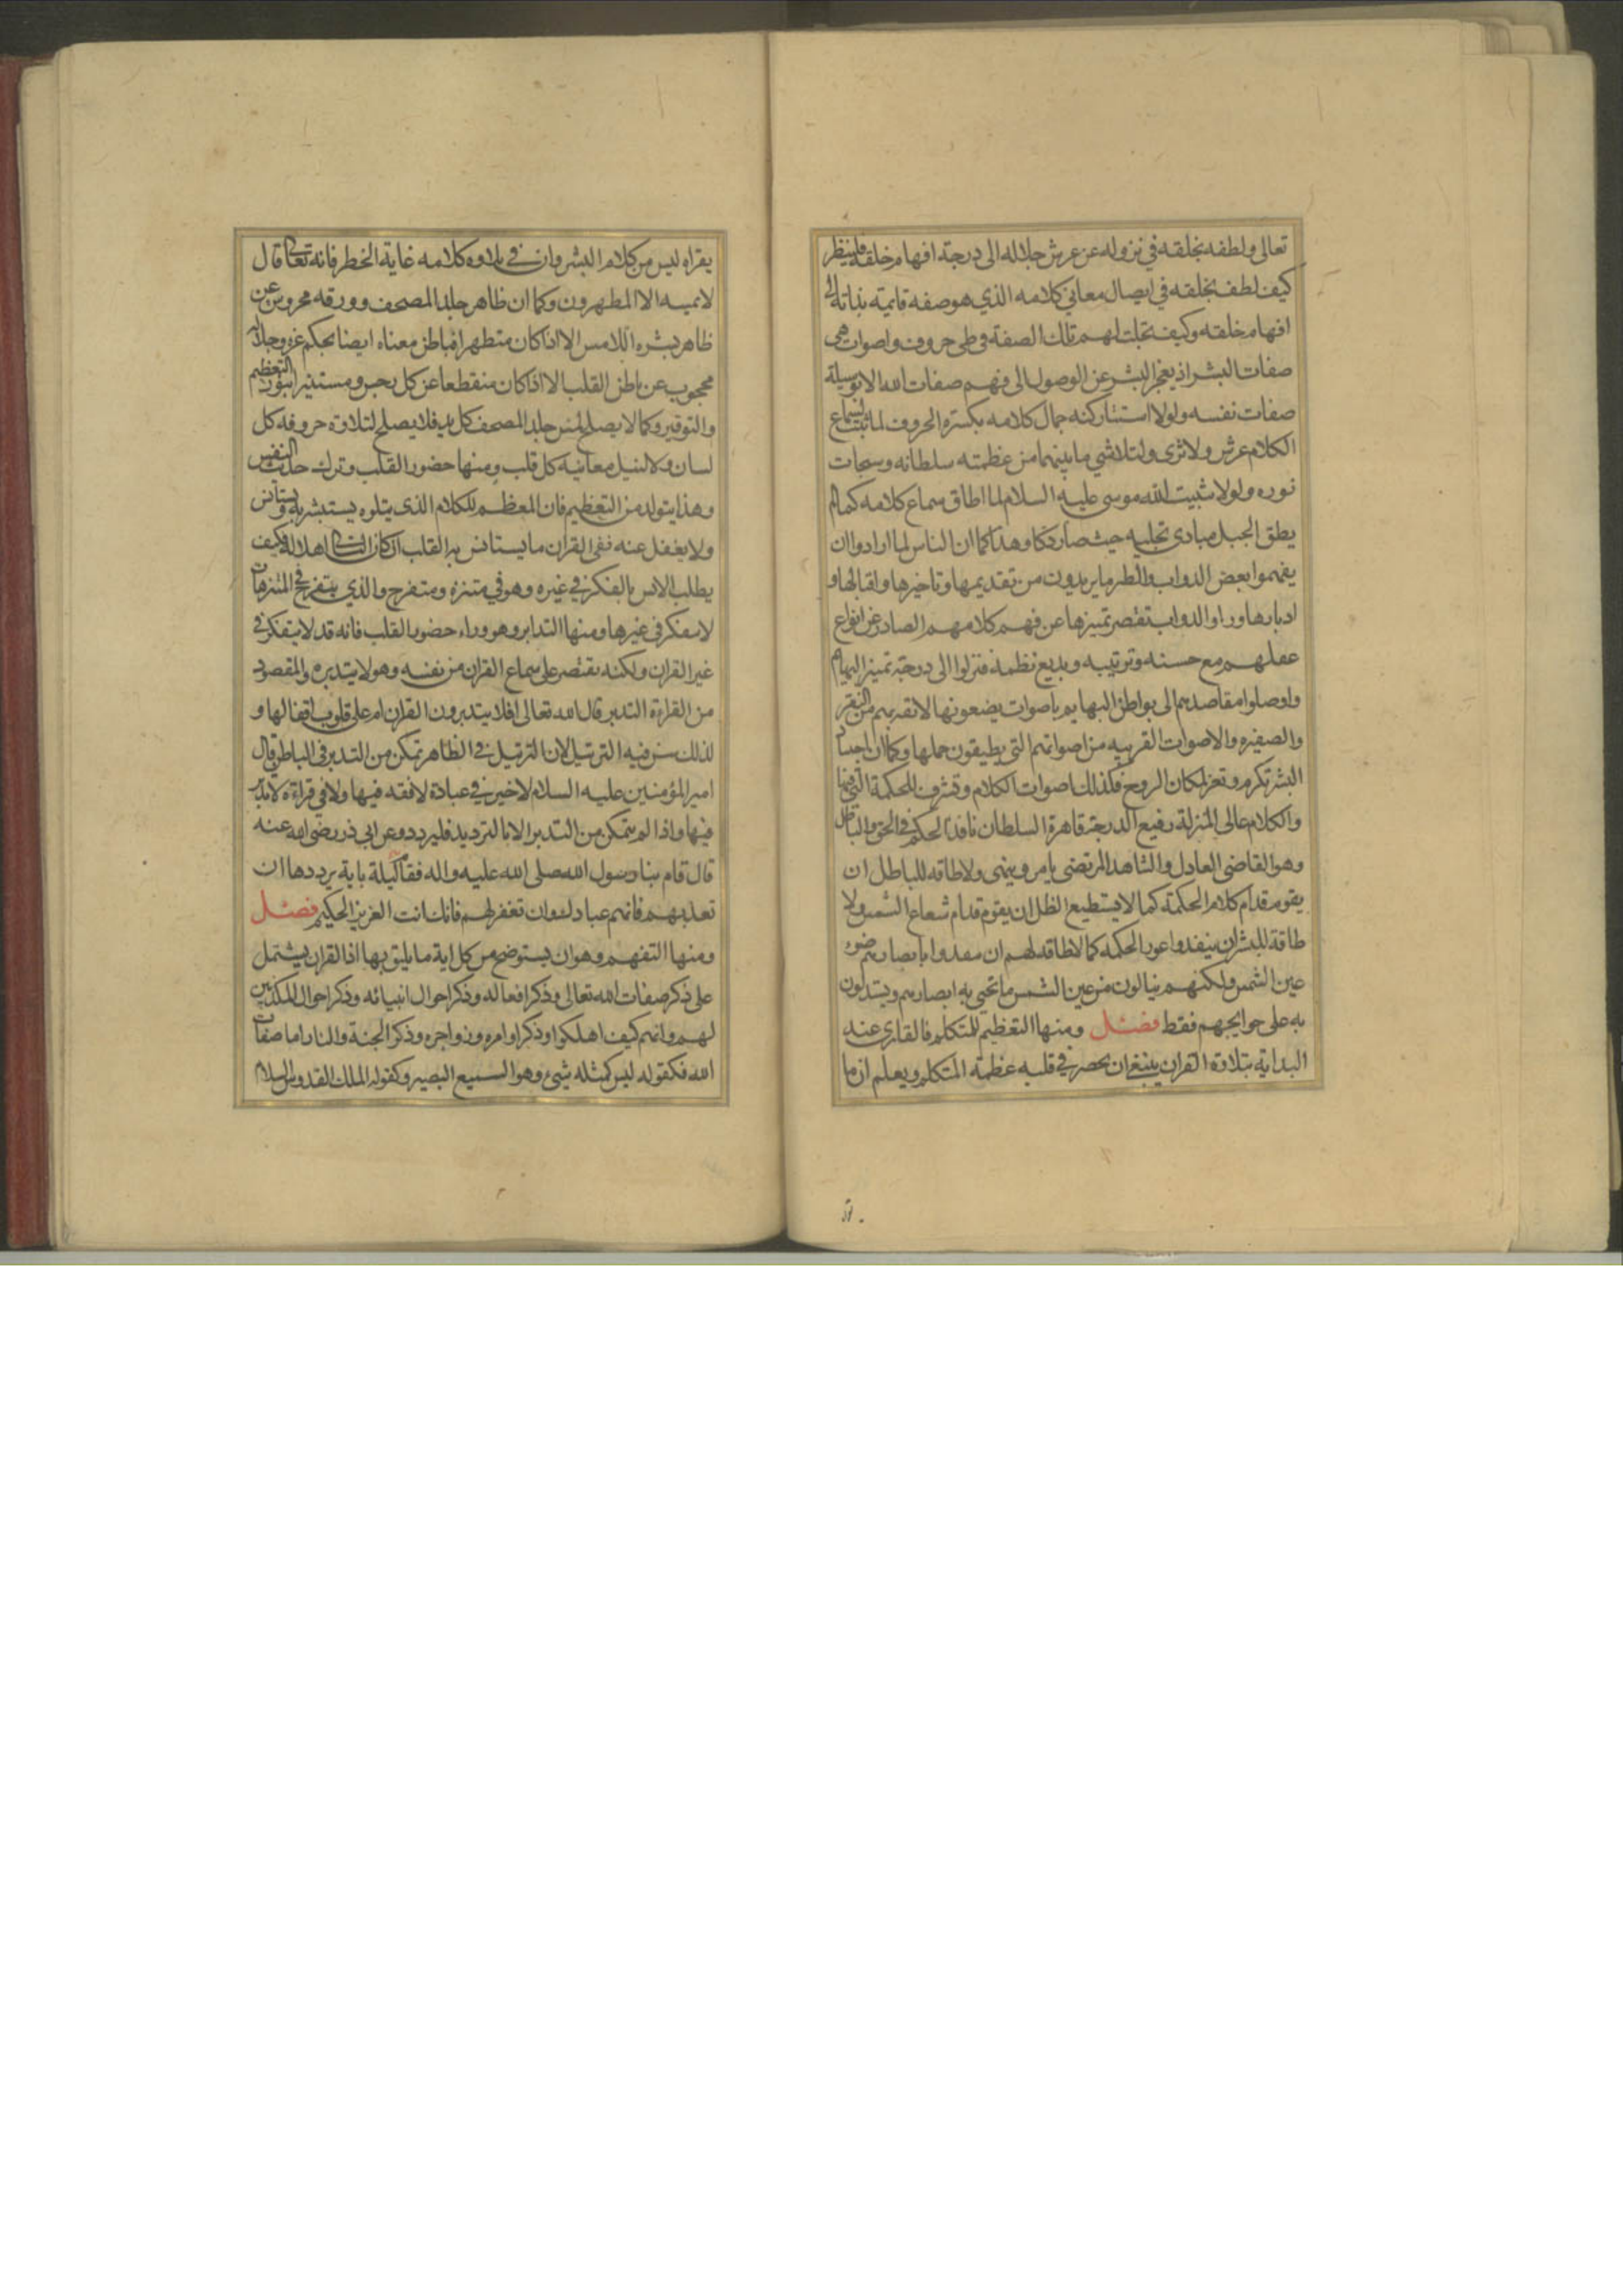 تعالى ولطفه بخلقه في نزوله عن عرش جلاله الى درجة افهام خلقه فلينظر
كيف لطف بخلقه في ايصال معاني كلامه الذي هو صفه قايمة بذاته الى
افهام خلقه وكيف تجلت لهم تلك الصفة في طي حروف واصوات هي
صفات البشر اذ يعجز البشر عن الوصول الى فهم صفات الله الا بوسيلة
صفات نفسه ولولا استتار كنه جمال كلامه بكسوة الحروف لما ثبت لسماع
الكلام عرش ولا ثرى ولتلاشي ما بينهما من عظمته سلطانه وسبحات
نوره ولولا تثبيت الله موسى عليه السلام لما اطاق سماع كلامه كما لم
يطق الجبل مبادى تجليه حيث صار دكا وهذا كما ان الناس لما ارادوا ان
يفهموا بعض الدواب والطير ما يريدون من تقديمها وتاخيرها واقبالها و
ادبارها وراوا الدواب تقتصر تميزها عن فهم كلامهم الصادر عن انواع
عقلهم مع حسنه وترتيبه وبديع نظمه فنزلوا الى درجة تميز البهايم
واوصلوا مقاصدهم الى بواطن البهايم باصوات يضعونها لائقة بهم من النقر
والصفيره والاصوات القريبه من اصواتهم التي يطيقون حملها وكما ان اجساد
البشر تكرم وتعز لمكان الروح فكذلك اصوات الكلام وتشرف للحكمة التي فيها
والكلام عالى المنزلة رفيع الدرجة قاهرة السلطان نافذ الحكم في الحق والباطل
وهو القاضي العادل والشاهد المرتضى يامر وينهى ولا طاقة للباطل ان
يقوم قدام كلام الحكمة كما لا يستطيع الظل ان يقوم قدام شعاع الشمس ولا
طاقة للبشر ان ينفدوا غور الحكمة كما لا طاقة لهم ان ينفدوا بابصارهم ضوء
عين الشمس ولكنهم ينالون من عين الشمس ما تحيى به ابصارهم ويستدلون
به على حوايجهم فقط فصل ومنها التعظيم للمتكلم فالقارى عند
البداية بتلاوة القران ينبغي ان يحضر في قلبه عظمة المتكلم ويعلم ان ما
يقراه ليس من كلام البشر وان في تلاوه كلامه غاية الخطر فانه تعالى قال
لا يمسه الا المطهرون وكما ان ظاهر جلد المصحف وورقه محروس عن
ظاهر بشره اللامس الا اذا كان متطهرا فباطن معناه ايضا بحكم عزه وجلاله
محجوب عن باطن القلب الا اذا كان منقطعا عن كل رجس ومستنيرا بنور التعظيم
والتوقير وكما لا يصلح لمس جلد المصحف كل يد فلا يصلح لتلاوة حروفه كل
لسان ولا لنيل معانيه كل قلب ومنها حضور القلب وترك حديث النفس
وهذا يتولد من التعظيم فان المعظم للكلام الذي يتلوه يستبشر به ويستانس
ولا يغفل عنه ففى القران ما يستانس به القلب ان كان التالى اهلا له فكيف
يطلب الانس بالفكر في غيره وهو في متنزه ومتفرج والذي يتفرج في المنتزهات
لا يتفكر فى غيرها ومنها التدابر وهو وراء حضور القلب فانه قد لا يتفكر في
غير القران ولكنه يقتصر على سماع القران من نفسه وهو لا يتدبره والمقصود
من القراءة التدبر قال الله تعالى افلا يتدبرون القران ام على قلوب اقفالها و
لذلك سن فيه الترتيل لان الترتيل في الظاهر تمكن من التدبر فى الباطن قال
امير المؤمنين عليه السلام لا خير في عبادة لا فقه فيها ولا في قراءة لا تدبر
فيها واذا لم يتمكن من التدبر الا بالترديد فليردد وعن ابى ذر رضى الله عنه
قال قام بنا رسول الله صلى الله عليه واله فقام ليلة باية يرددها ان
تعذبهم فانهم عبادك وان تغفر لهم فانك انت العزيز الحكيم فصل
ومنها التفهم وهو ان يستوضح من كل اية ما يليق بها اذ القران يشتمل
على ذكر صفات الله تعالى وذكر افعاله وذكر احوال انبيائه وذكر احوال المكذبين
لهم وانهم كيف اهلكوا وذكر اوامره وزواجره وذكر الجنة والنار اما صفات
الله فكقوله ليس كمثله شيئ وهو السميع البصير وكقوله الملك القدوس السلام